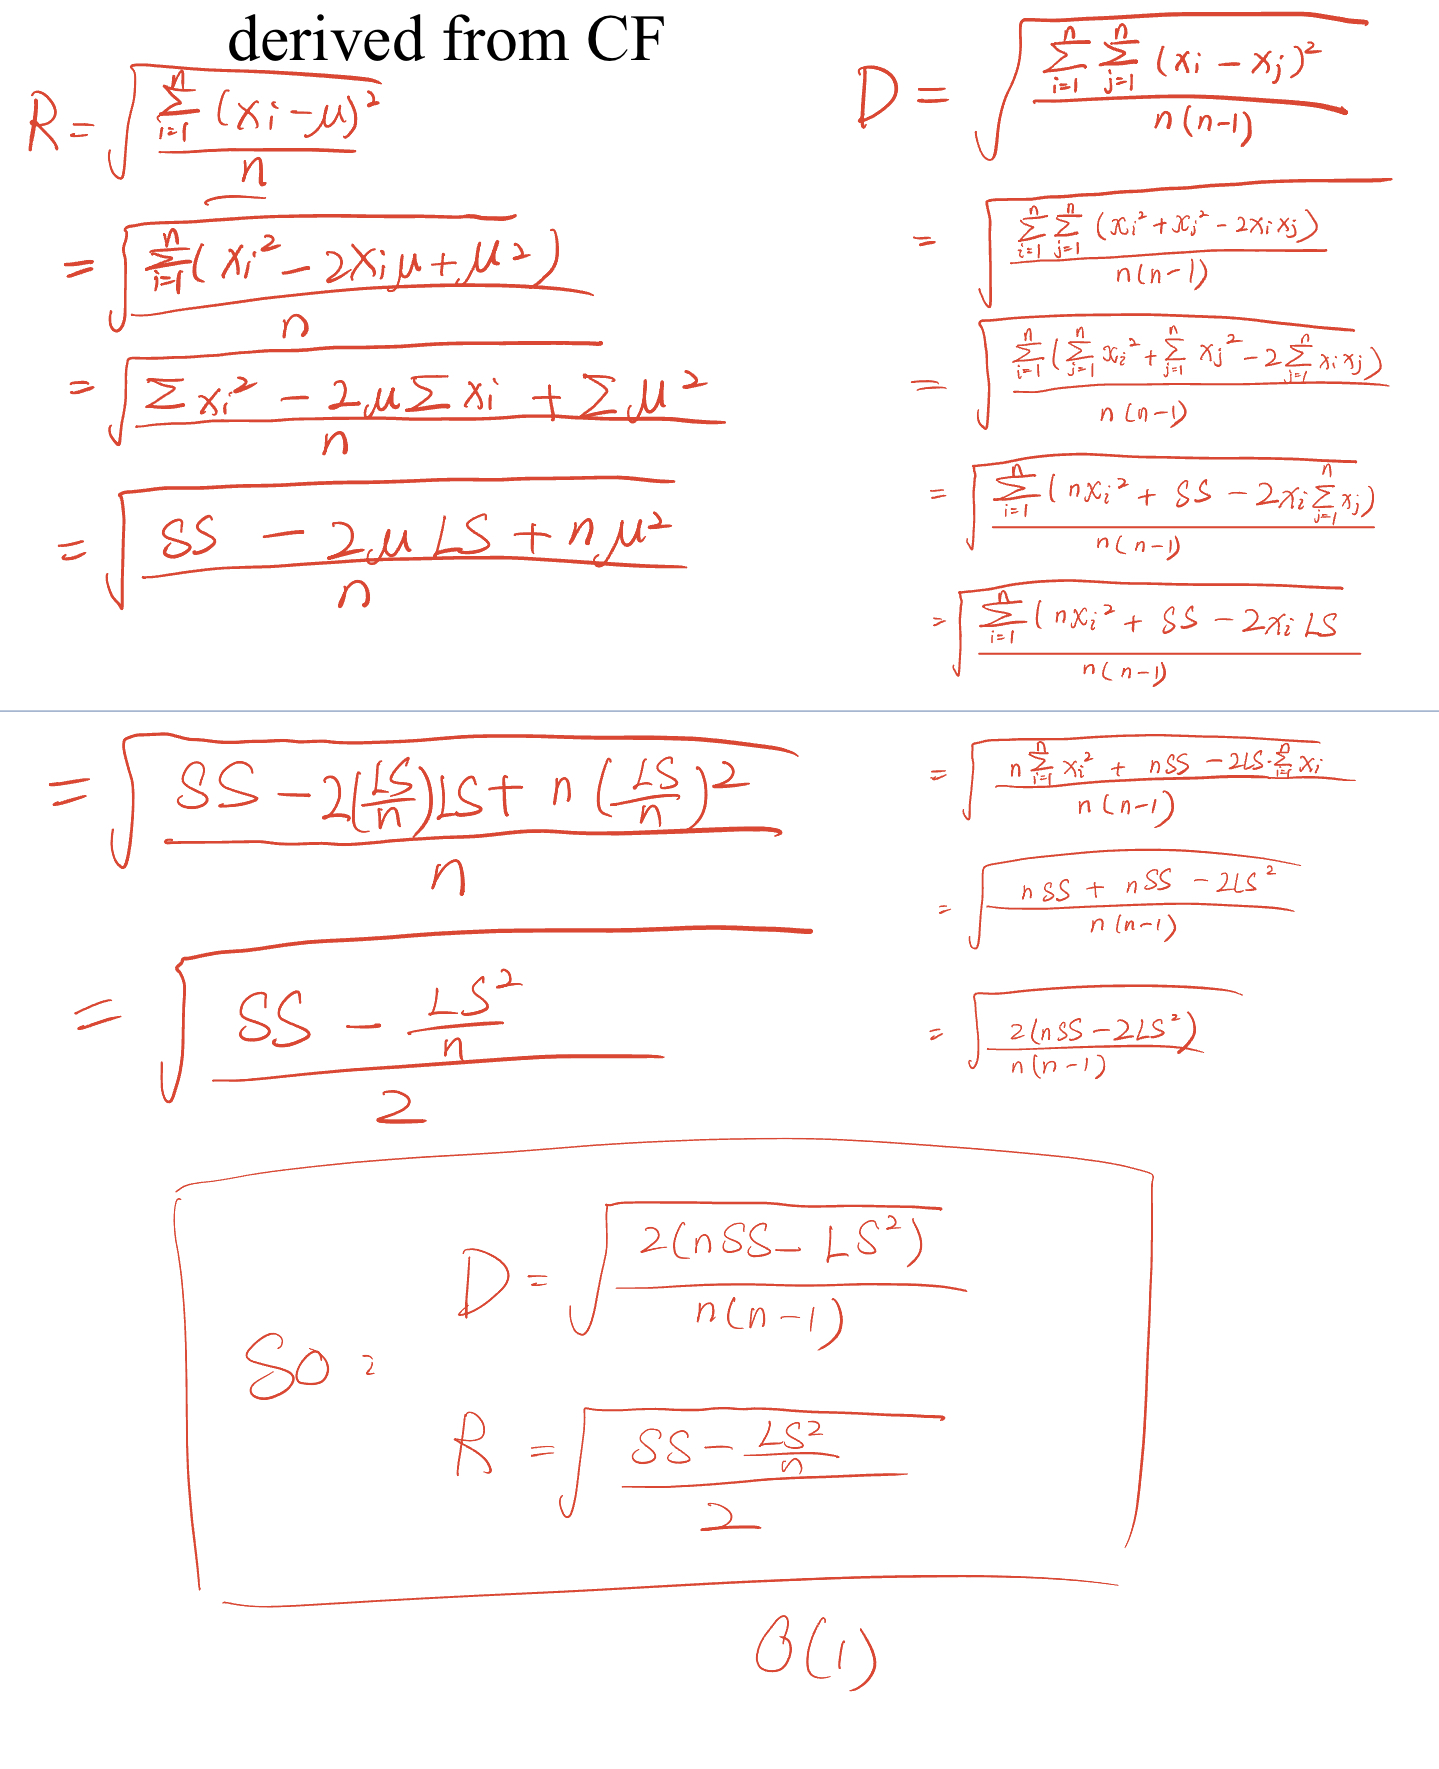 derived from CF
R = √( ∑_{i=1}^{n} (xi - μ)² / n )
= √( ∑_{i=1}^{n} ( xi² - 2xiμ + μ² ) / n )
= √( ( ∑ xi² - 2μ∑xi + ∑μ² ) / n )
= √( ( SS - 2μLS + nμ² ) / n )
= √( ( SS - 2(LS/n)LS + n(LS/n)² ) / n )
= √( ( SS - LS²/n ) / 2 )
D = √( ∑_{i=1}^{n} ∑_{j=1}^{n} (xi - xj)² / n(n-1) )
= √( ∑_{i=1}^{n} ∑_{j=1}^{n} (xi² + xj² - 2xixj) / n(n-1) )
= √( ∑_{i=1}^{n} ( ∑_{j=1}^{n} xi² + ∑_{j=1}^{n} xj² - 2∑_{j=1}^{n} xixj ) / n(n-1) )
= √( ∑_{i=1}^{n} ( nxi² + SS - 2xi ∑_{j=1}^{n} xj ) / n(n-1) )
= √( ∑_{i=1}^{n} ( nxi² + SS - 2xi LS / n(n-1) )
= √( n∑_{i=1}^{n} xi² + nSS - 2LS·∑_{i=1}^{n} xi / n(n-1) )
= √( nSS + nSS - 2LS² / n(n-1) )
= √( 2(nSS - 2LS²) / n(n-1) )
So :
D = √( 2(nSS - LS²) / n(n-1) )
R = √( ( SS - LS²/n ) / 2 )
O(1)